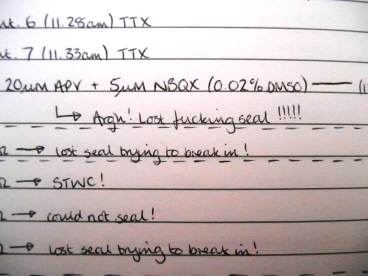 nt. 6 (11.28am) TTX
nt. 7 (11.33am) TTX
20µM APV + 5µM NBQX (0.02% DMSO) — (1
↳ Argh! Lost fucking seal !!!!!
Ω → lost seal trying to break in!
Ω → STWC!
Ω → could not seal!
Ω → lost seal trying to break in!